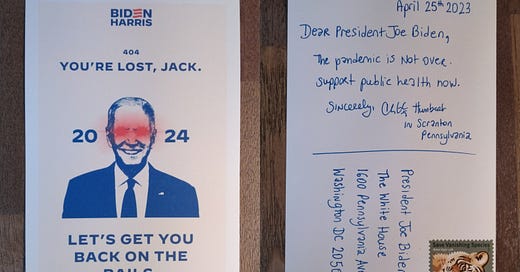 BIDEN
HARRIS
404
YOU'RE LOST, JACK.
20 24
LET'S GET YOU
BACK ON THE
April 25th 2023
Dear President Joe Biden,
The pandemic is not over.
Support public health now.
Sincerely,
in Scranton
Pennsylvania
President Joe Biden
The White House
1600 Pennsylvania Av
Washington DC 205
Save Vanishing Species